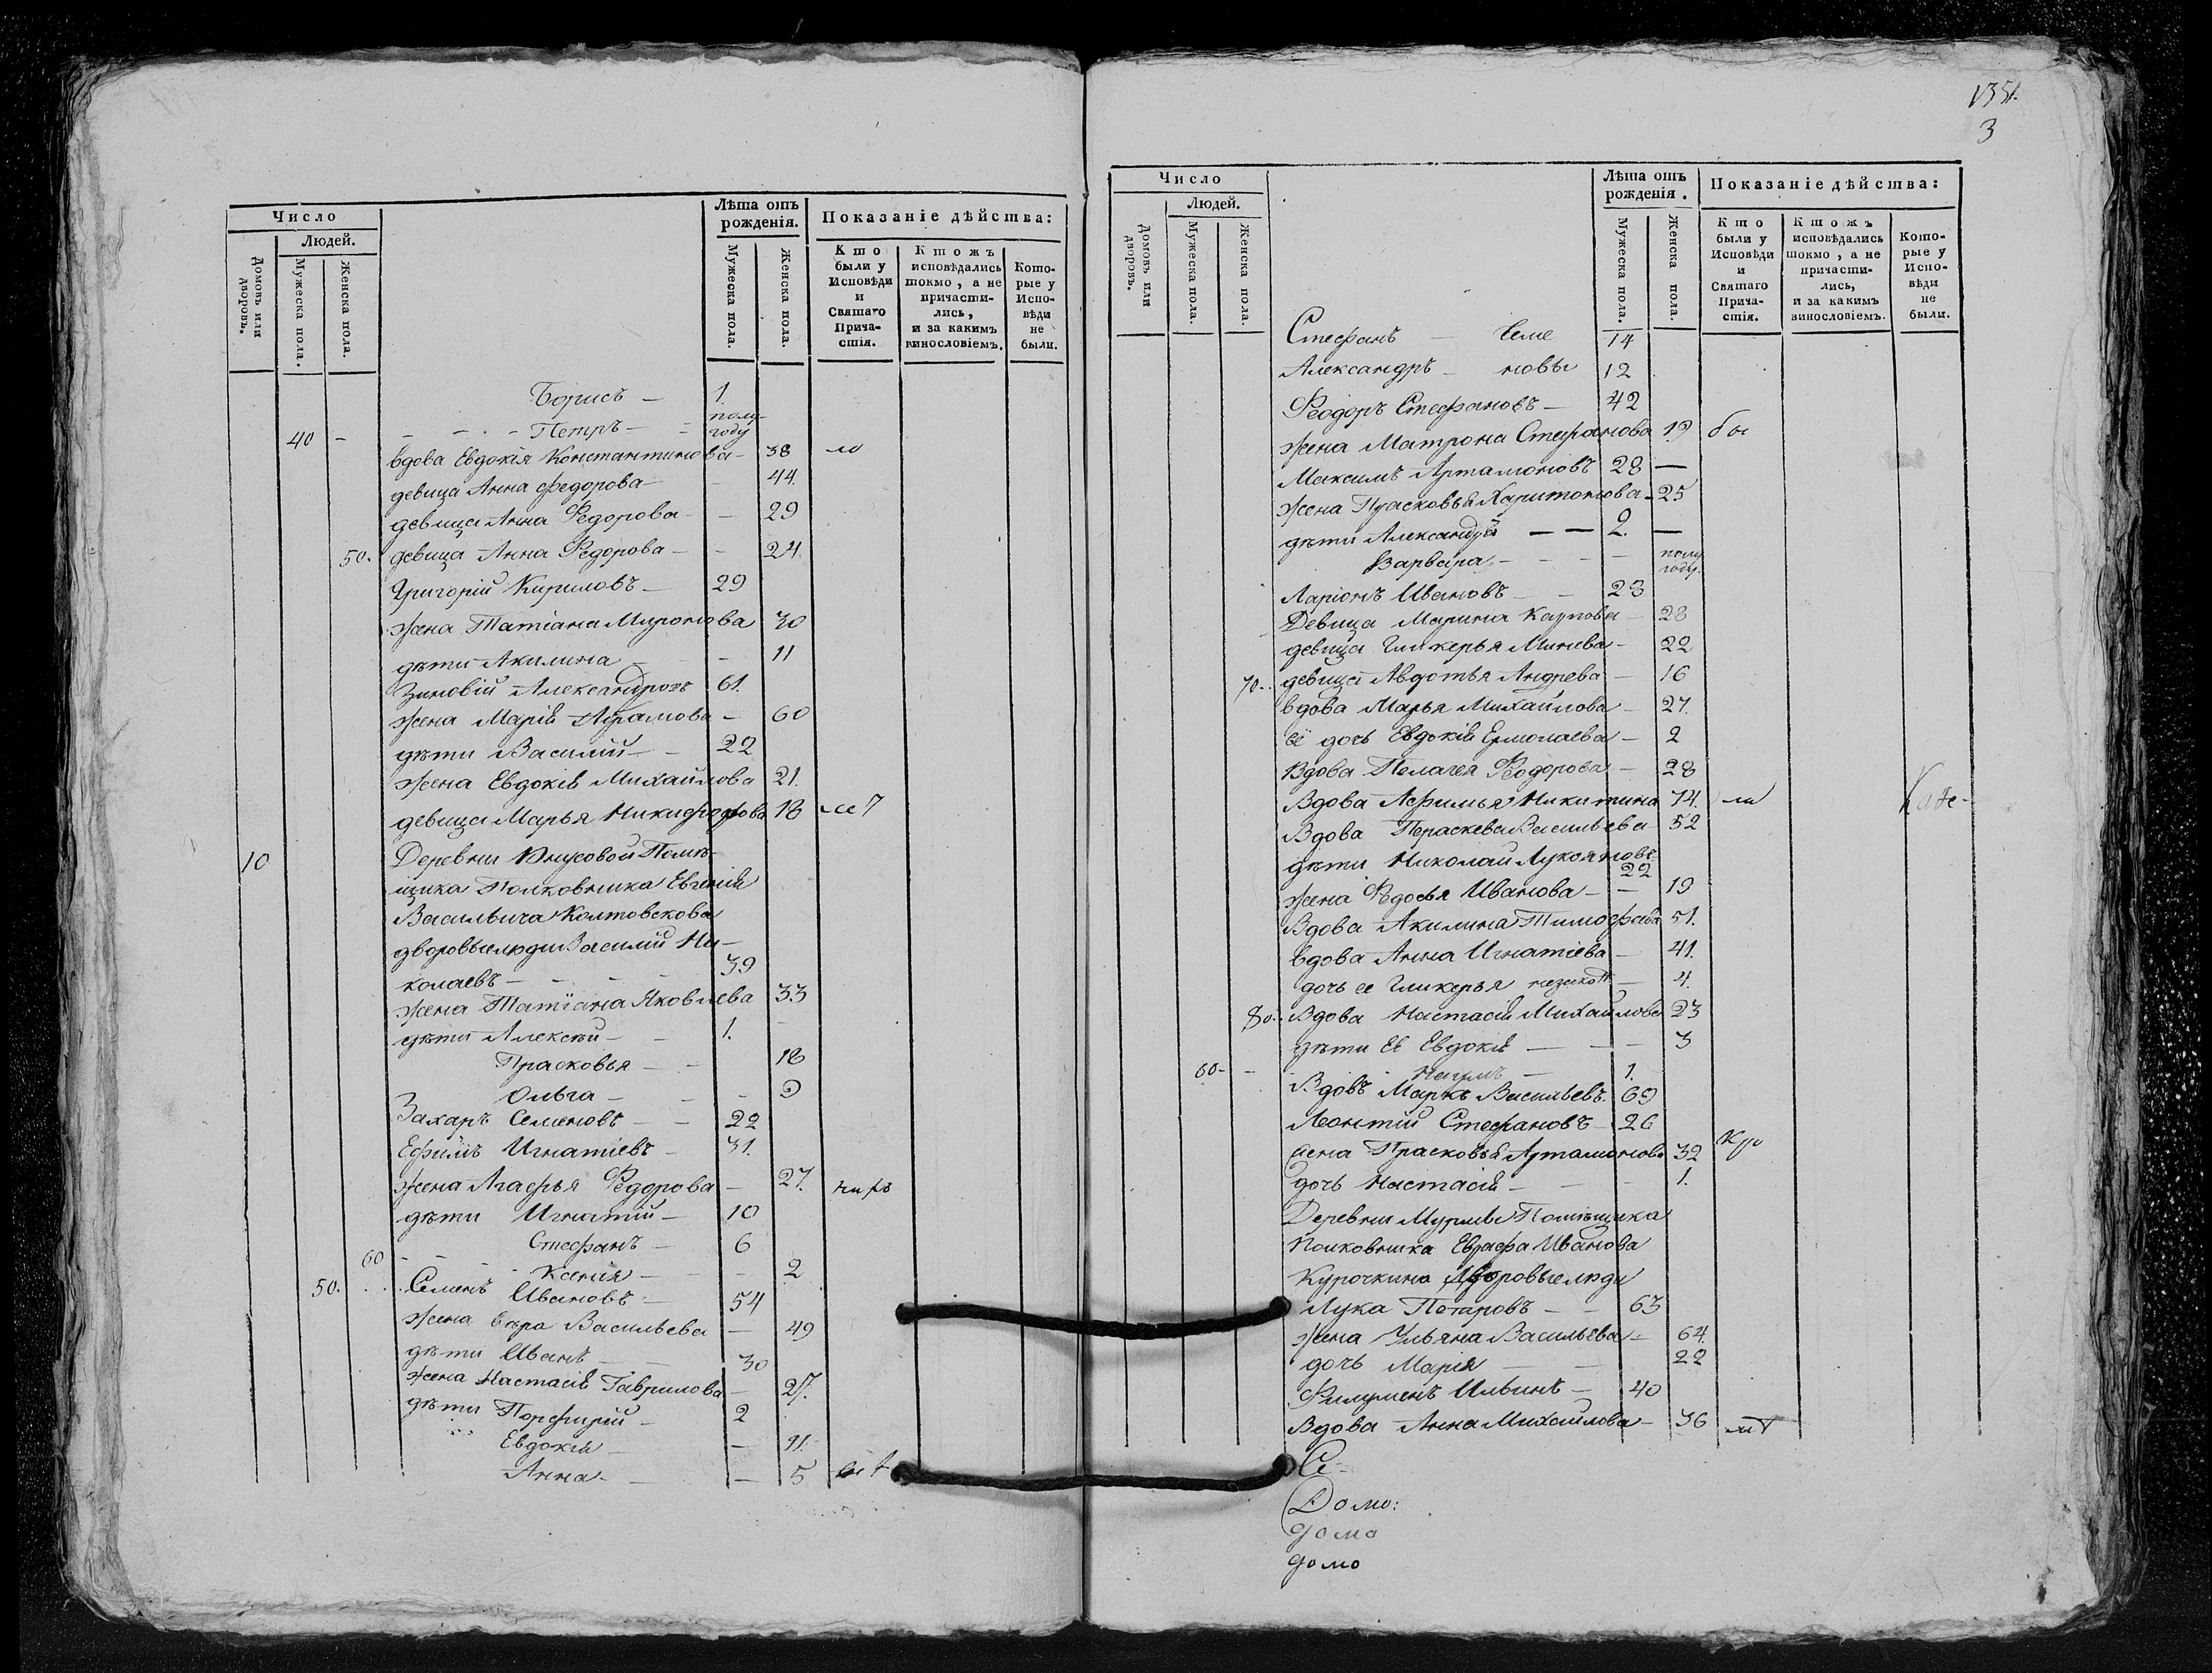 Число
Людей.
Домовъ или дворовъ.
Мужеска пола.
Женска пола.
Лѣта отъ рожденія.
Мужеска пола.
Женска пола.
Показаніе дѣйства:
Кто были у Исповѣди и Святаго Причастія.
Ктожъ исповѣдались токмо, а не причастились, и за какимъ винословіемъ.
Которые у Исповѣди не были.
Борисъ — 1.
40 — Петръ — полугоду
вдова Евдокія Константинова — 38 ло
девица Анна Федорова — 44.
девица Анна Федорова — 29
50. девица Анна Федорова — 24.
Григорій Кириловъ — 29
жена Татіана Миронова 30
дѣти Акилина — 11
Зиновій Александровъ 61.
жена Марія Абрамова — 60
дѣти Василій — 22
жена Евдокія Михайлова 21.
девица Марья Никифорова 18
10 Деревни Помѣ-
щика Полковника Евгенія
Васильича Колтовскова
дворовые люди Василий Ни-
колаевъ — 39
жена Татіана Яковлева 33
дѣти Алексѣй — 1.
Прасковья — 18
Ольга — 9
Захаръ Семеновъ — 22
Ефимъ Игнатіевъ — 31.
жена Агафья Федорова — 27.
дѣти Игнатій — 10
Стефанъ — 6
60 — Ксенія — 2
50. Семенъ Ивановъ — 54
жена Вѣра Васильева — 49
дѣти Иванъ — 30
жена Настасія Гаврилова — 27.
дѣти Порфирій — 2
Евдокія — 11.
Анна — 5
1351.
3
Число
Людей.
Домовъ или дворовъ.
Мужеска пола.
Женска пола.
Лѣта отъ рожденія.
Мужеска пола.
Женска пола.
Показаніе дѣйства:
Кто были у Исповѣди и Святаго Причастія.
Ктожъ исповѣдались токмо, а не причастились, и за какимъ винословіемъ.
Которые у Исповѣди не были.
Стефанъ — Семе 14
Александръ — новы 12
Феодоръ Стефановъ — 42
жена Матрона Стефанова 19 бы
Максимъ Артамоновъ 28 —
жена Прасковья Харитонова — 25
дѣти Александръ — — 2. —
Варвара — полугоду.
Ларіонъ Ивановъ — 23
Девица Марина Карпова — 28
девица Гликерья Минева — 22
70. девица Авдотья Андрева — 16
вдова Марья Михайлова — 27.
её дочь Евдокія Ермолаева — 2
Вдова Пелагея Феодорова — 28
Вдова Афимья Никитина 74. ли
Вдова Параскева Васильева 52
дѣти Николай Лукояновъ 22
жена Федосья Иванова — 19
Вдова Акилина Тимофеева 51.
вдова Анна Игнатіева — 41.
дочь ее Гликерья — 4.
80. Вдова Настасія Михайлова 23
дѣти Её Евдокія — 3
60 — Наумъ — 1.
Вдовъ Маркъ Васильевъ. 69
Леонтій Стефановъ 26
жена Прасковья Артамонова 32
дочь Настасія — 1.
Деревни Помѣщика
Полковника Евграфа Иванова
Курочкина Дворовые люди
Лука Петровъ — 63
жена Ульяна Васильева — 64.
дочь Марія — 22
Филимонъ Ильинъ — 40
Вдова Анна Михайлова — 36
Се
Домо:
домо
домо